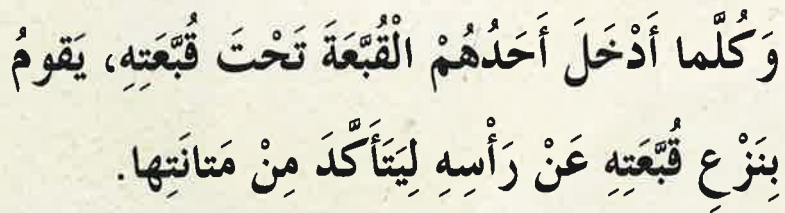 وَكُلَّما أَدْخَلَ أَحَدُهُمْ الْقُبَّعَةَ تَحْتَ قُبَّعَتِهِ، يَقومُ
بِنَزْعِ قُبَّعَتِهِ عَنْ رَأْسِهِ لِيَتَأَكَّدَ مِنْ مَتانَتِها.